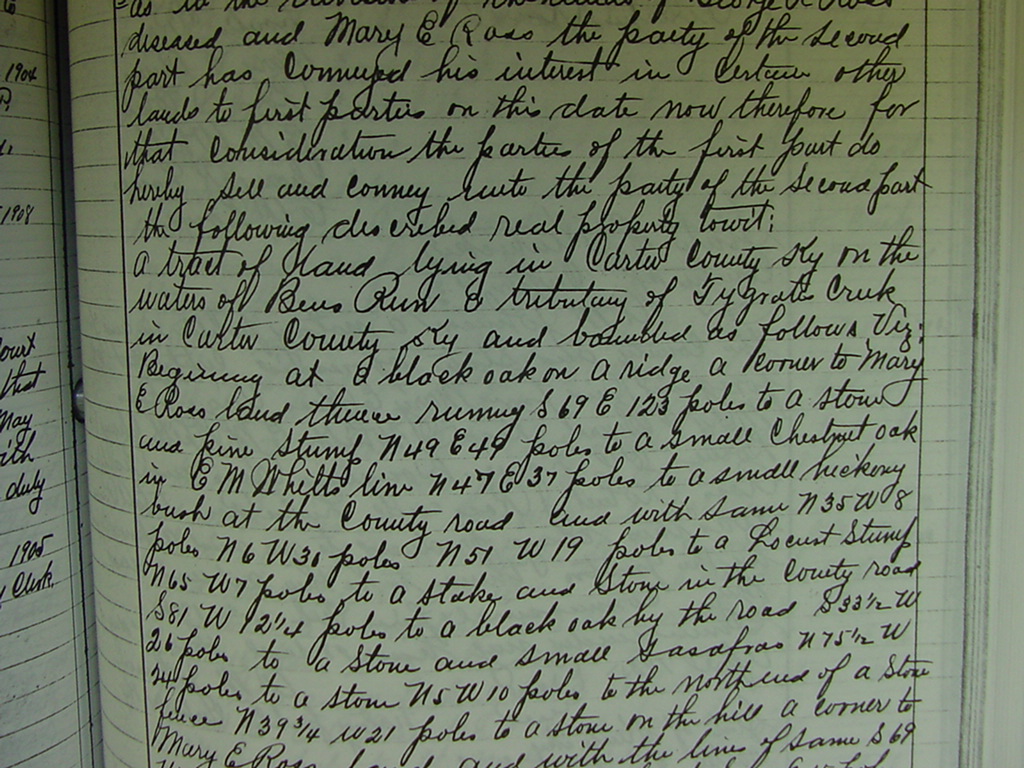 as in the division of the lands of George R Ross
diseased and Mary E Ross the party of the second
part has conveyed his interest in certain other
lands to first parties on this date now therefore for
that consideration the parties of the first part do
hereby sell and convey unto the party of the second part
the following described real property towit:
A tract of land lying in Carter County Ky on the
waters of Bens Run a tributary of Tygrats Creek
in Carter County Ky and bounded as follows Viz:
Beginning at a black oak on a ridge a corner to Mary
E Ross land thence running S 69 E 123 poles to a stone
and pine stump N 49 E 49 poles to a small Chestnut oak
in E M Whitts line N 47 E 37 poles to a small hickory
bush at the County road and with same N 35 W 8
poles N 6 W 30 poles N 51 W 19 poles to a Locust Stump
N 65 W 7 poles to a stake and Stone in the County road
S 81 W 12 1/4 poles to a black oak by the road S 33 1/2 W
26 poles to a Stone and small Sasafras N 75 1/2 W
24 poles to a stone N 5 W 10 poles to the north end of a Stone
fence N 39 3/4 W 21 poles to a stone on the hill a corner to
Mary E Ross land and with the line of same S 69
1904
1908
Court
that
May
with
duly
1905
Clerk